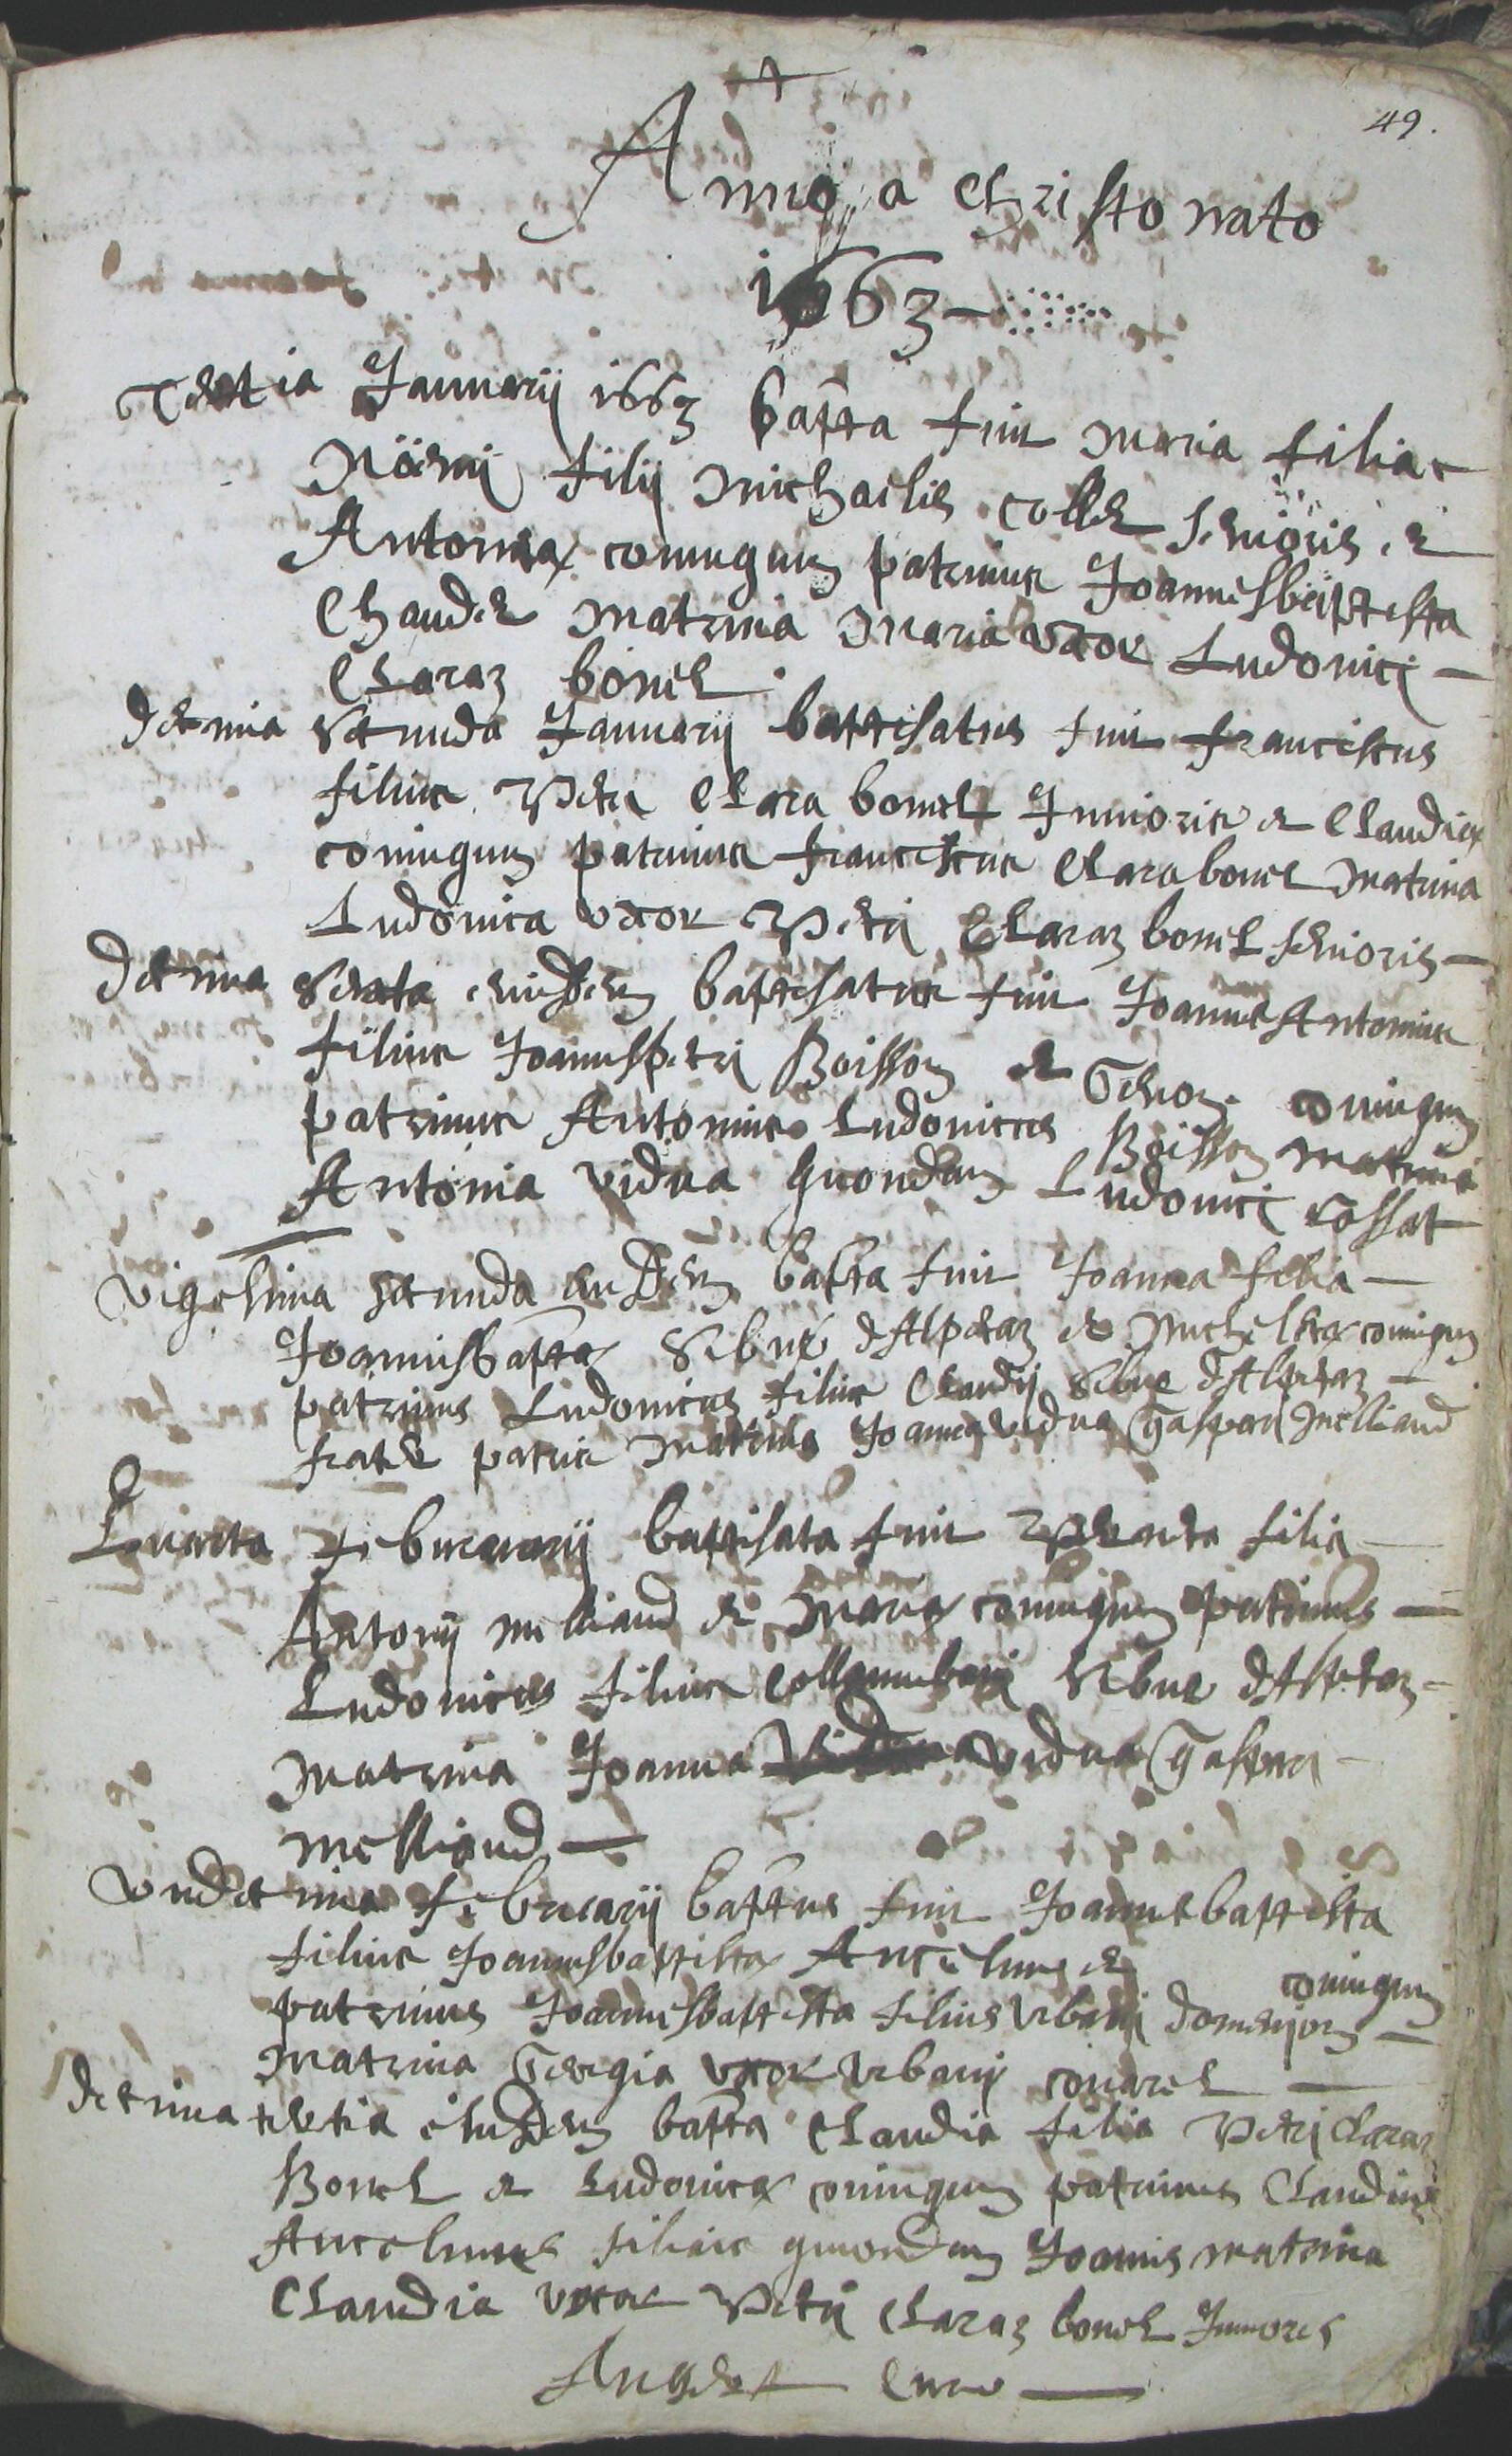 49.
Anno a Christo nato
1663
Tertia Januarij 1663 bapta fuit Maria filia
Noemij filij Michaelis Coller Senioris et
Antoniæ coniugum patrinus Joannesbaptista
Chaudet matrina Maria uxor Ludovici
Claraz bonet
Decima secunda Januarij baptisatus fuit franciscus
filius Petri Clara bonet Junioris et Claudiæ
coniugum patrinus franciscus Clara bonet matrina
Ludovica uxor Petri Claraz bonet senioris
Decima sexta eiusdem baptisatus fuit Joannes Antonius
filius Joannispetri Boisson et coniugum
patrinus Antonius Ludovicus Boisson matrina
Antonia vidua quondam Ludovici Cossat
Vigesima secunda eiusdem bapta fuit Joanna filia
Joannisbaptæ Sibue dAlpetaz et Michelliæ coniugum
patrinus Ludovicus filius Claudij Sibue dAlpetaz
frater patris matrina Joanna vidua Gasperi Melliand
Quarta februarij baptisata fuit filia
Antonij Melliand et Mariæ coniugum patrinus
Ludovicus filius Collumbani Sibue dAlpetaz
matrina Joanna vidua Gasperi
Melliand
Undecima februarij baptus fuit Joannesbaptista
filius Joannisbaptistæ Ancelme et coniugum
patrinus Joannesbaptista filius Urbani
matrina Georgia uxor Urbani
Decima tertia eiusdem bapta Claudia filia Petri Claraz
Bonet et Ludovicæ coniugum patrinus Claudius
Ancelmus filius quondam Joannis matrina
Claudia uxor Petri Claraz bonet Junioris